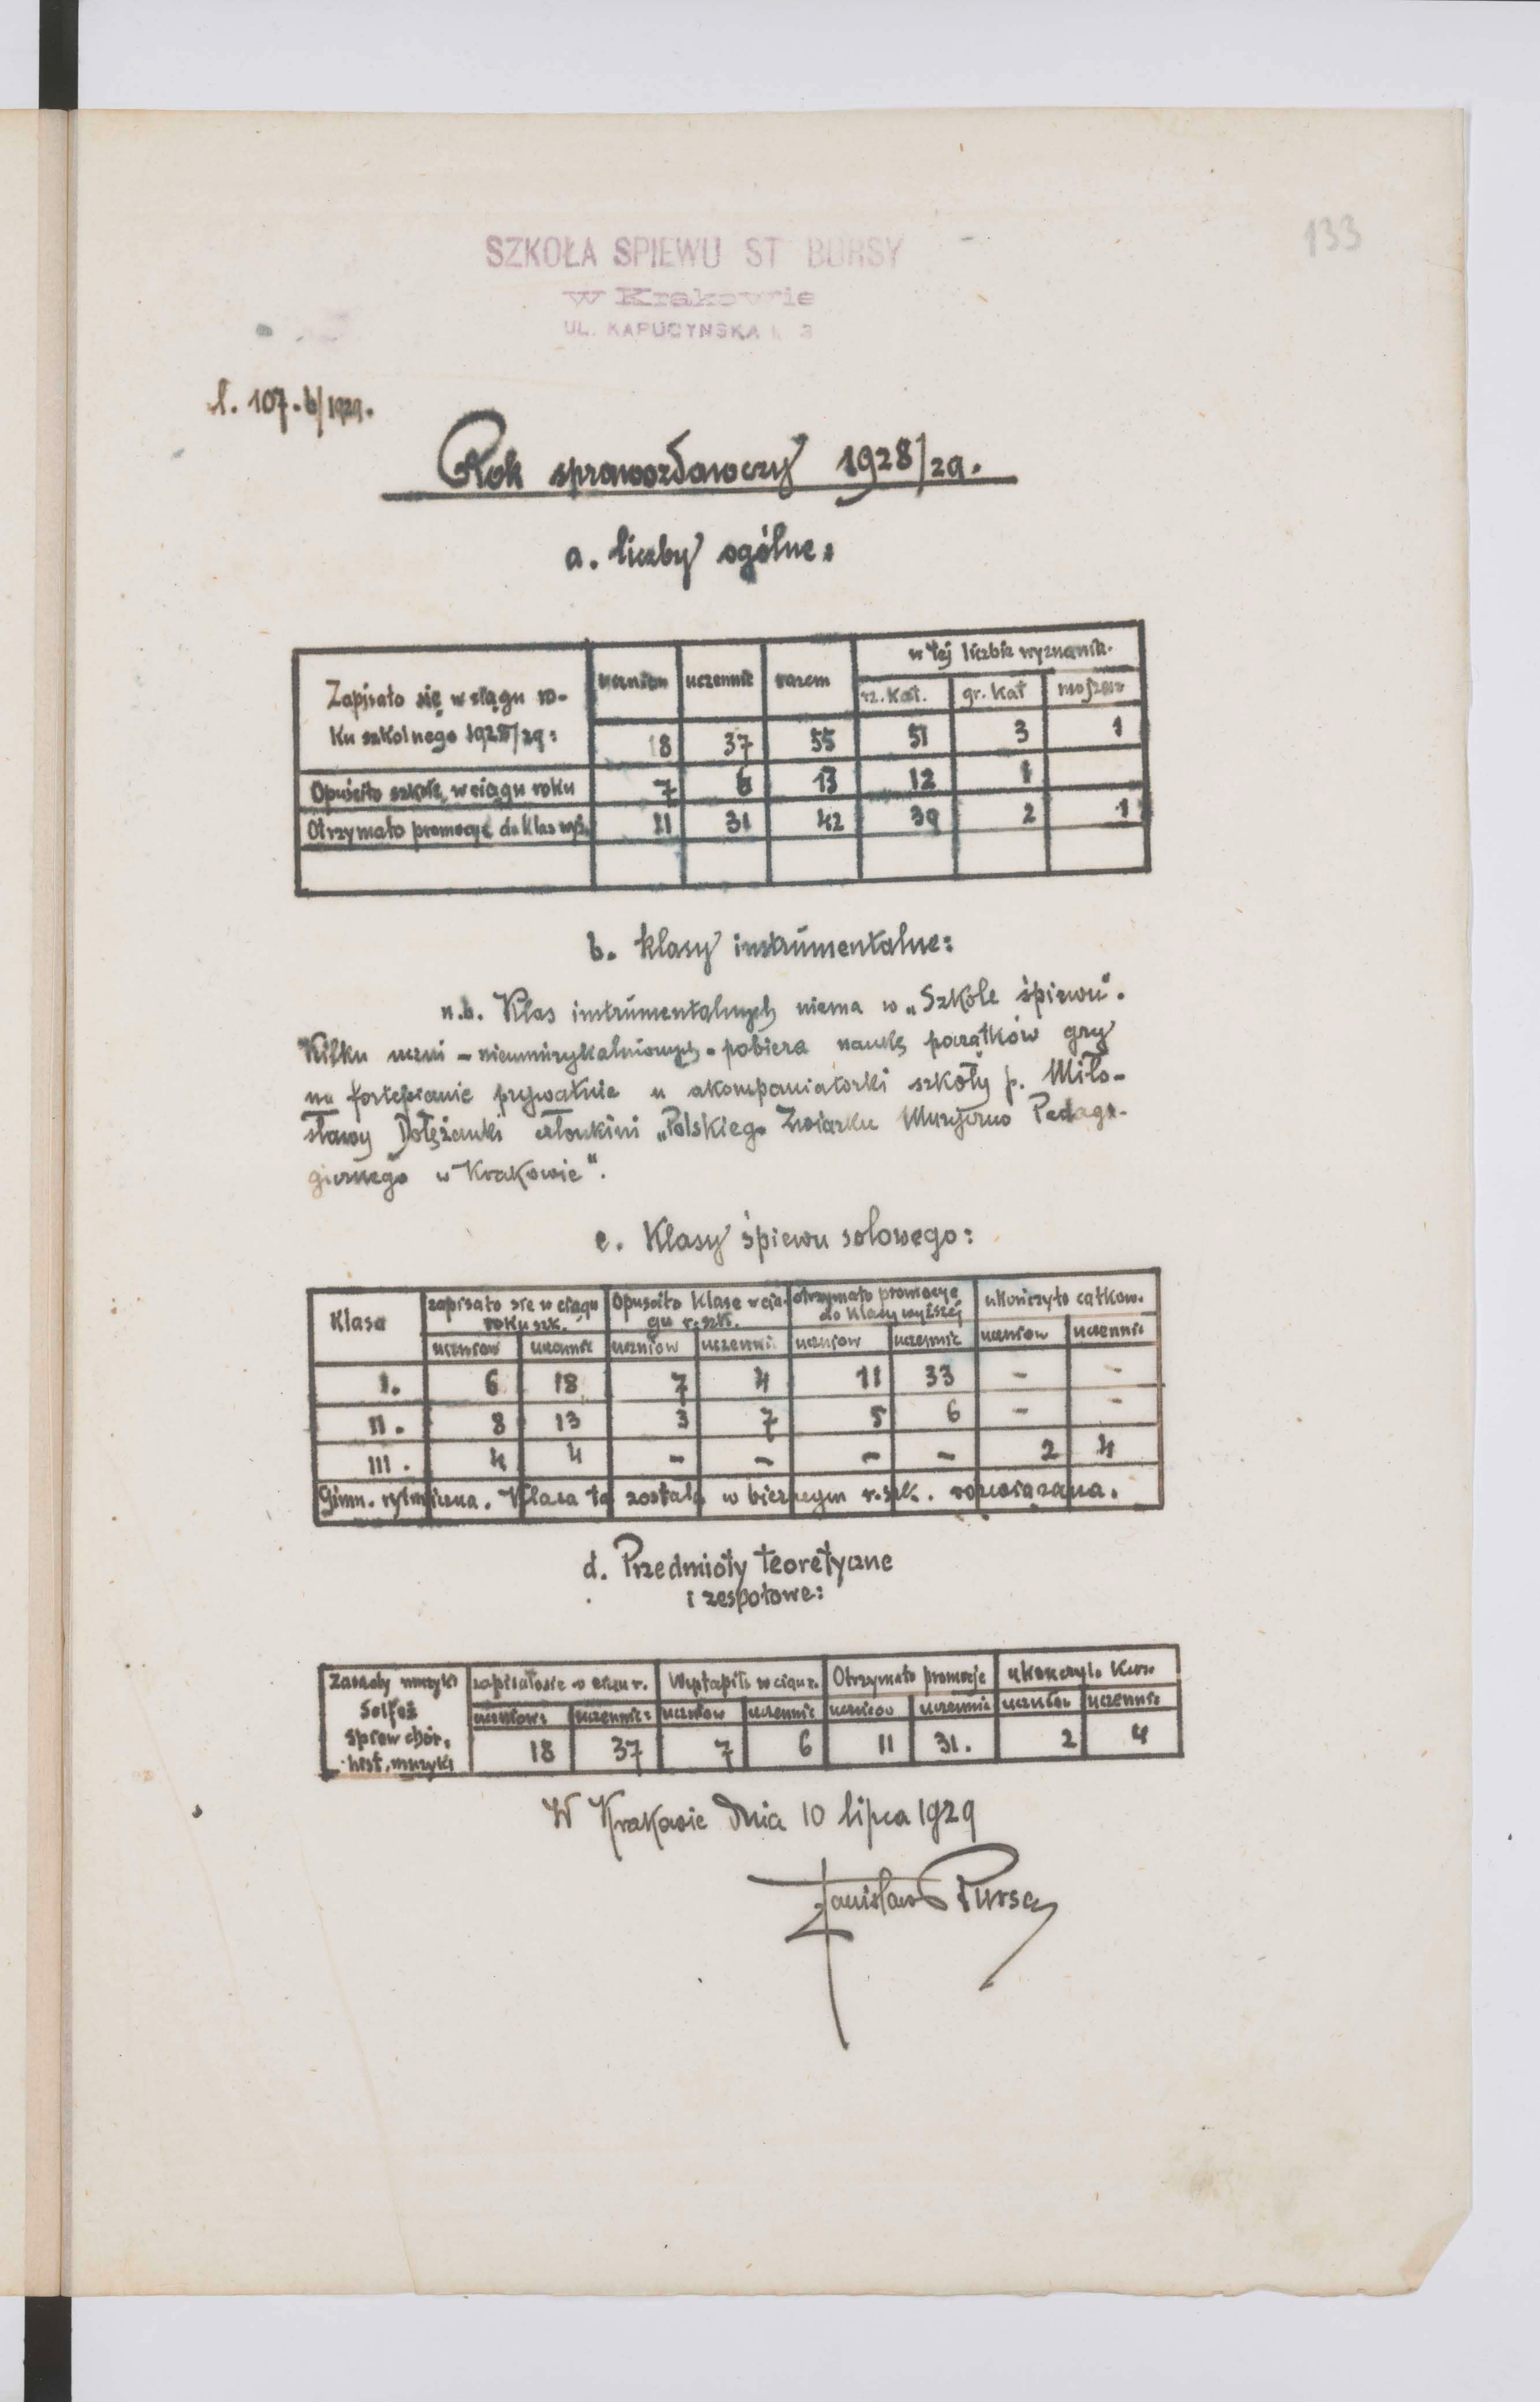 133
SZKOŁA SPIEWU ST BURSY
w Krakowie
UL. KAPUCYNSKA 3
l. 107.b/1929.
Rok sprawozdawczy 1928/29.
a. liczby ogólne:
Zapisało się w ciągu ro-
ku szkolnego 1928/29:
uczniow uczennic razem w tej liczbie wyznania.
rz. kat. gr. kat mojżesz
18 37 55 51 3 1
Opuściło szkołę w ciągu roku 7 6 13 12 1
Otrzymało promocyę do klas wyż. 11 31 42 39 2 1
b. klasy instrumentalne:
n.b. Klas instrumentalnych niema w „Szkole śpiewu".
Kilku uczni - nieumuzykalnionych - pobiera naukę początków gry
na fortepianie prywatnie u akompaniatorki szkoły p. Miło-
sławy Dołężanki członkini „Polskiego Związku Muzyczno Pedago-
gicznego w Krakowie".
c. Klasy śpiewu solowego:
Klasa zapisało sie w ciągu roku szk. Opuscito klase w cią-gu r. szk. otrzymało promocye do klasy wyższej ukończyło całkow.
uczniow uczennic uczniow uczennic uczniow uczennic uczniow uczennic
I. 6 18 7 4 11 33 - -
II. 8 13 3 7 5 6 - -
III. 4 4 - - - - 2 4
Gimn. rytmiczna. Klasa ta została w bieżącym r. szk. rozwiązana.
d. Przedmioty teoretyczne
i zespołowe:
Zasady muzyki zapisałosie w ciągu r. Wystąpiło w ciągu r. Otrzymało promocje ukonczyło Kurs.
Solfeż uczniow: uczennic: uczniow uczennic uczniow uczennic uczniow uczennic
Spiew chór. 18 37 7 6 11 31. 2 4
hist. muzyki
W Krakowie dnia 10 lipca 1929
Stanisław Bursa